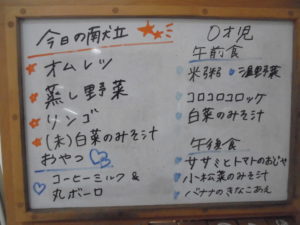 今日の献立
オムレツ
蒸し野菜
リンゴ
(未)白菜のみそ汁
おやつ
コーヒーミルク &
丸ボーロ
0才児
午前食
米粥 温野菜
コロコロコロッケ
白菜のみそ汁
午後食
ササミとトマトのおじや
小松菜のみそ汁
バナナのきなこあえ